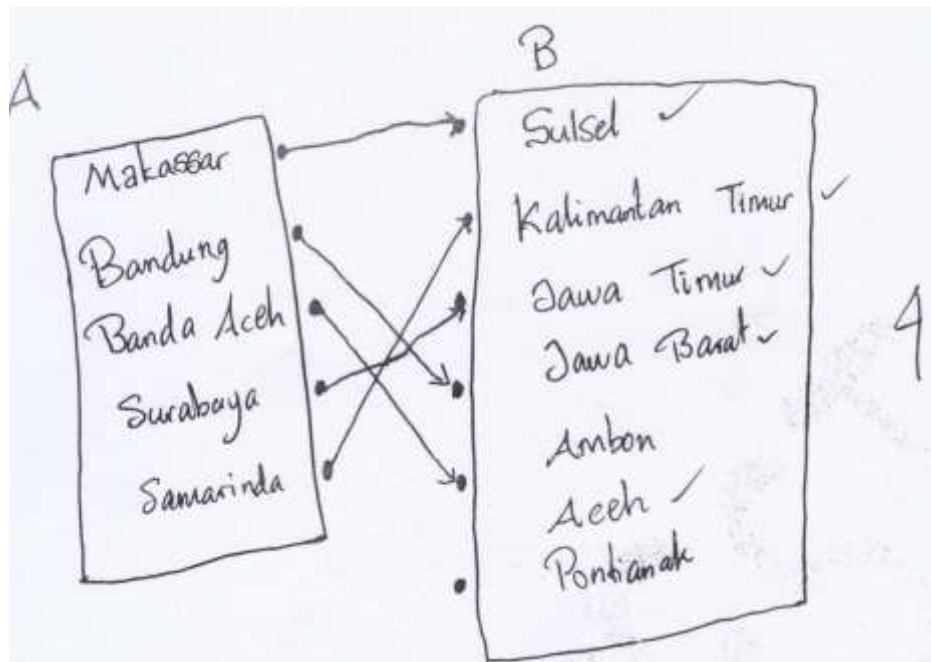 A
Makassar
Bandung
Banda Aceh
Surabaya
Samarinda
B
Sulsel
Kalimantan Timur
Jawa Timur
Jawa Barat
Ambon
Aceh
Pontianak
4